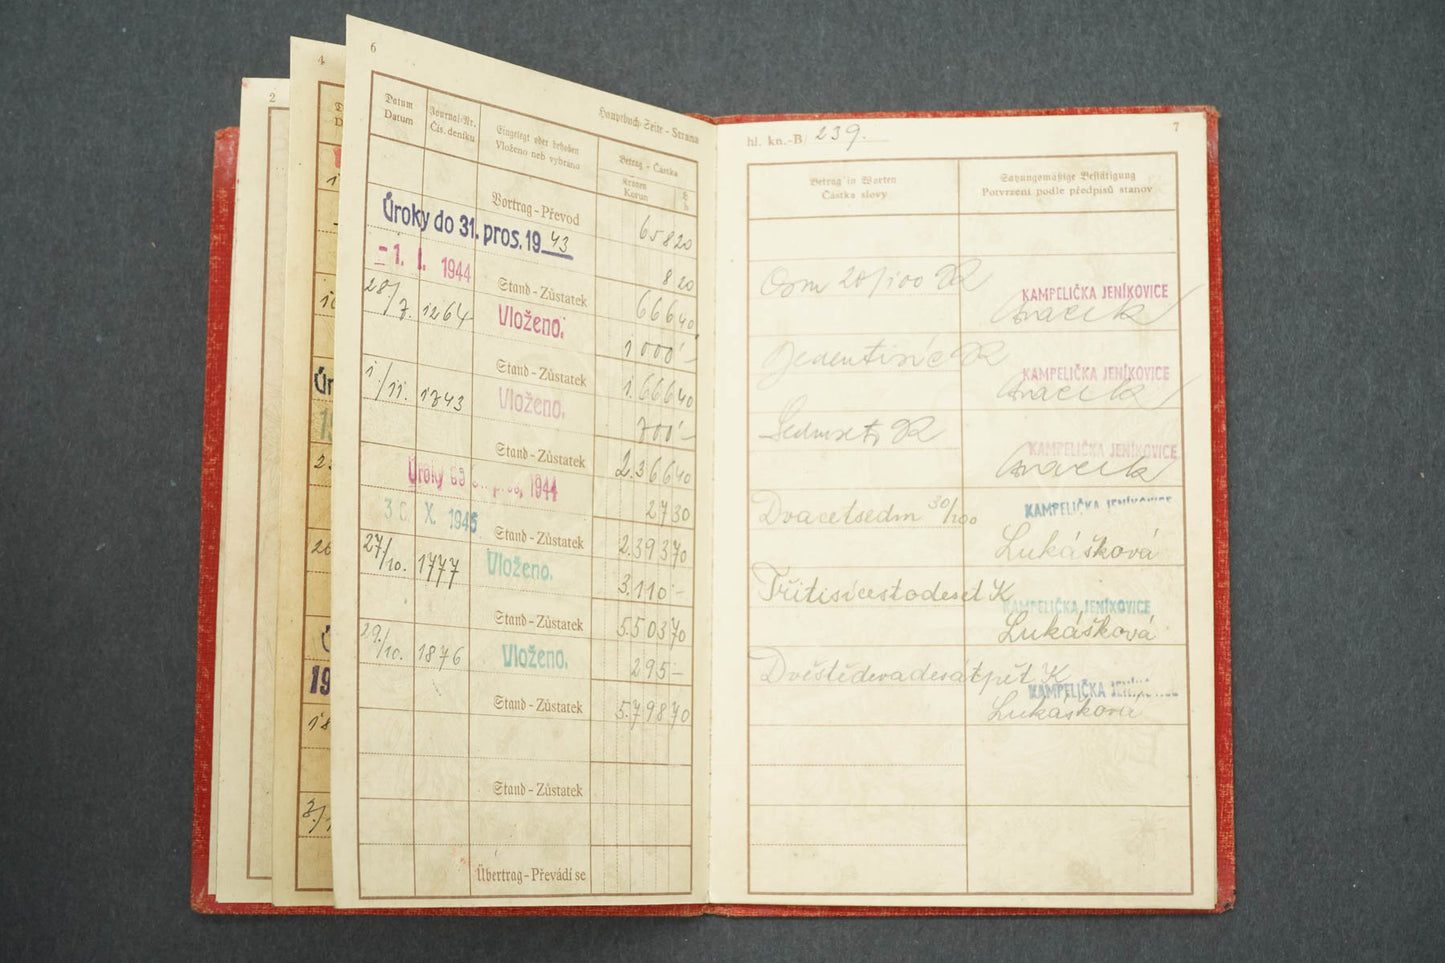 2
4
6
Hauptbuch-Seite - Strana
Datum
Datum
Journal-Nr.
Čís. deníku
Eingelegt oder behoben
Vloženo neb vybráno
Betrag - Částka
Kronen
Korun
h
h
Vortrag - Převod
658 20
Úroky do 31. pros. 1943
8 20
- 1. I. 1944
Stand - Zůstatek
666 40
28/7. 1264 Vloženo. 1000 -
Stand - Zůstatek
1.666 40
1./11. 1743 Vloženo. 700 -
Stand - Zůstatek
2.366 40
Úroky pros. 1944
27 30
X. 1945
Stand - Zůstatek
2.393 70
27/10. 1777 Vloženo. 3.110 -
Stand - Zůstatek
5.503 70
29./10. 1876 Vloženo. 295 -
Stand - Zůstatek
5.798 70
Stand - Zůstatek
Übertrag - Převádí se
7
hl. kn.-B 239.
Betrag in Worten
Částka slovy
Satzungsmäßige Bestätigung
Potvrzení podle předpisů stanov
Osm 20/100 K
KAMPELIČKA JENÍKOVICE
Jedentisíc K
KAMPELIČKA JENÍKOVICE
Sedmset K
KAMPELIČKA JENÍKOVICE
Dvacetsedm 30/100
KAMPELIČKA JENÍKOVICE
Lukášková
Třitisícestodeset K
KAMPELIČKA JENÍKOVICE
Lukášková
Dvěstědevadesátpět K
KAMPELIČKA JENÍKOVICE
Lukášková